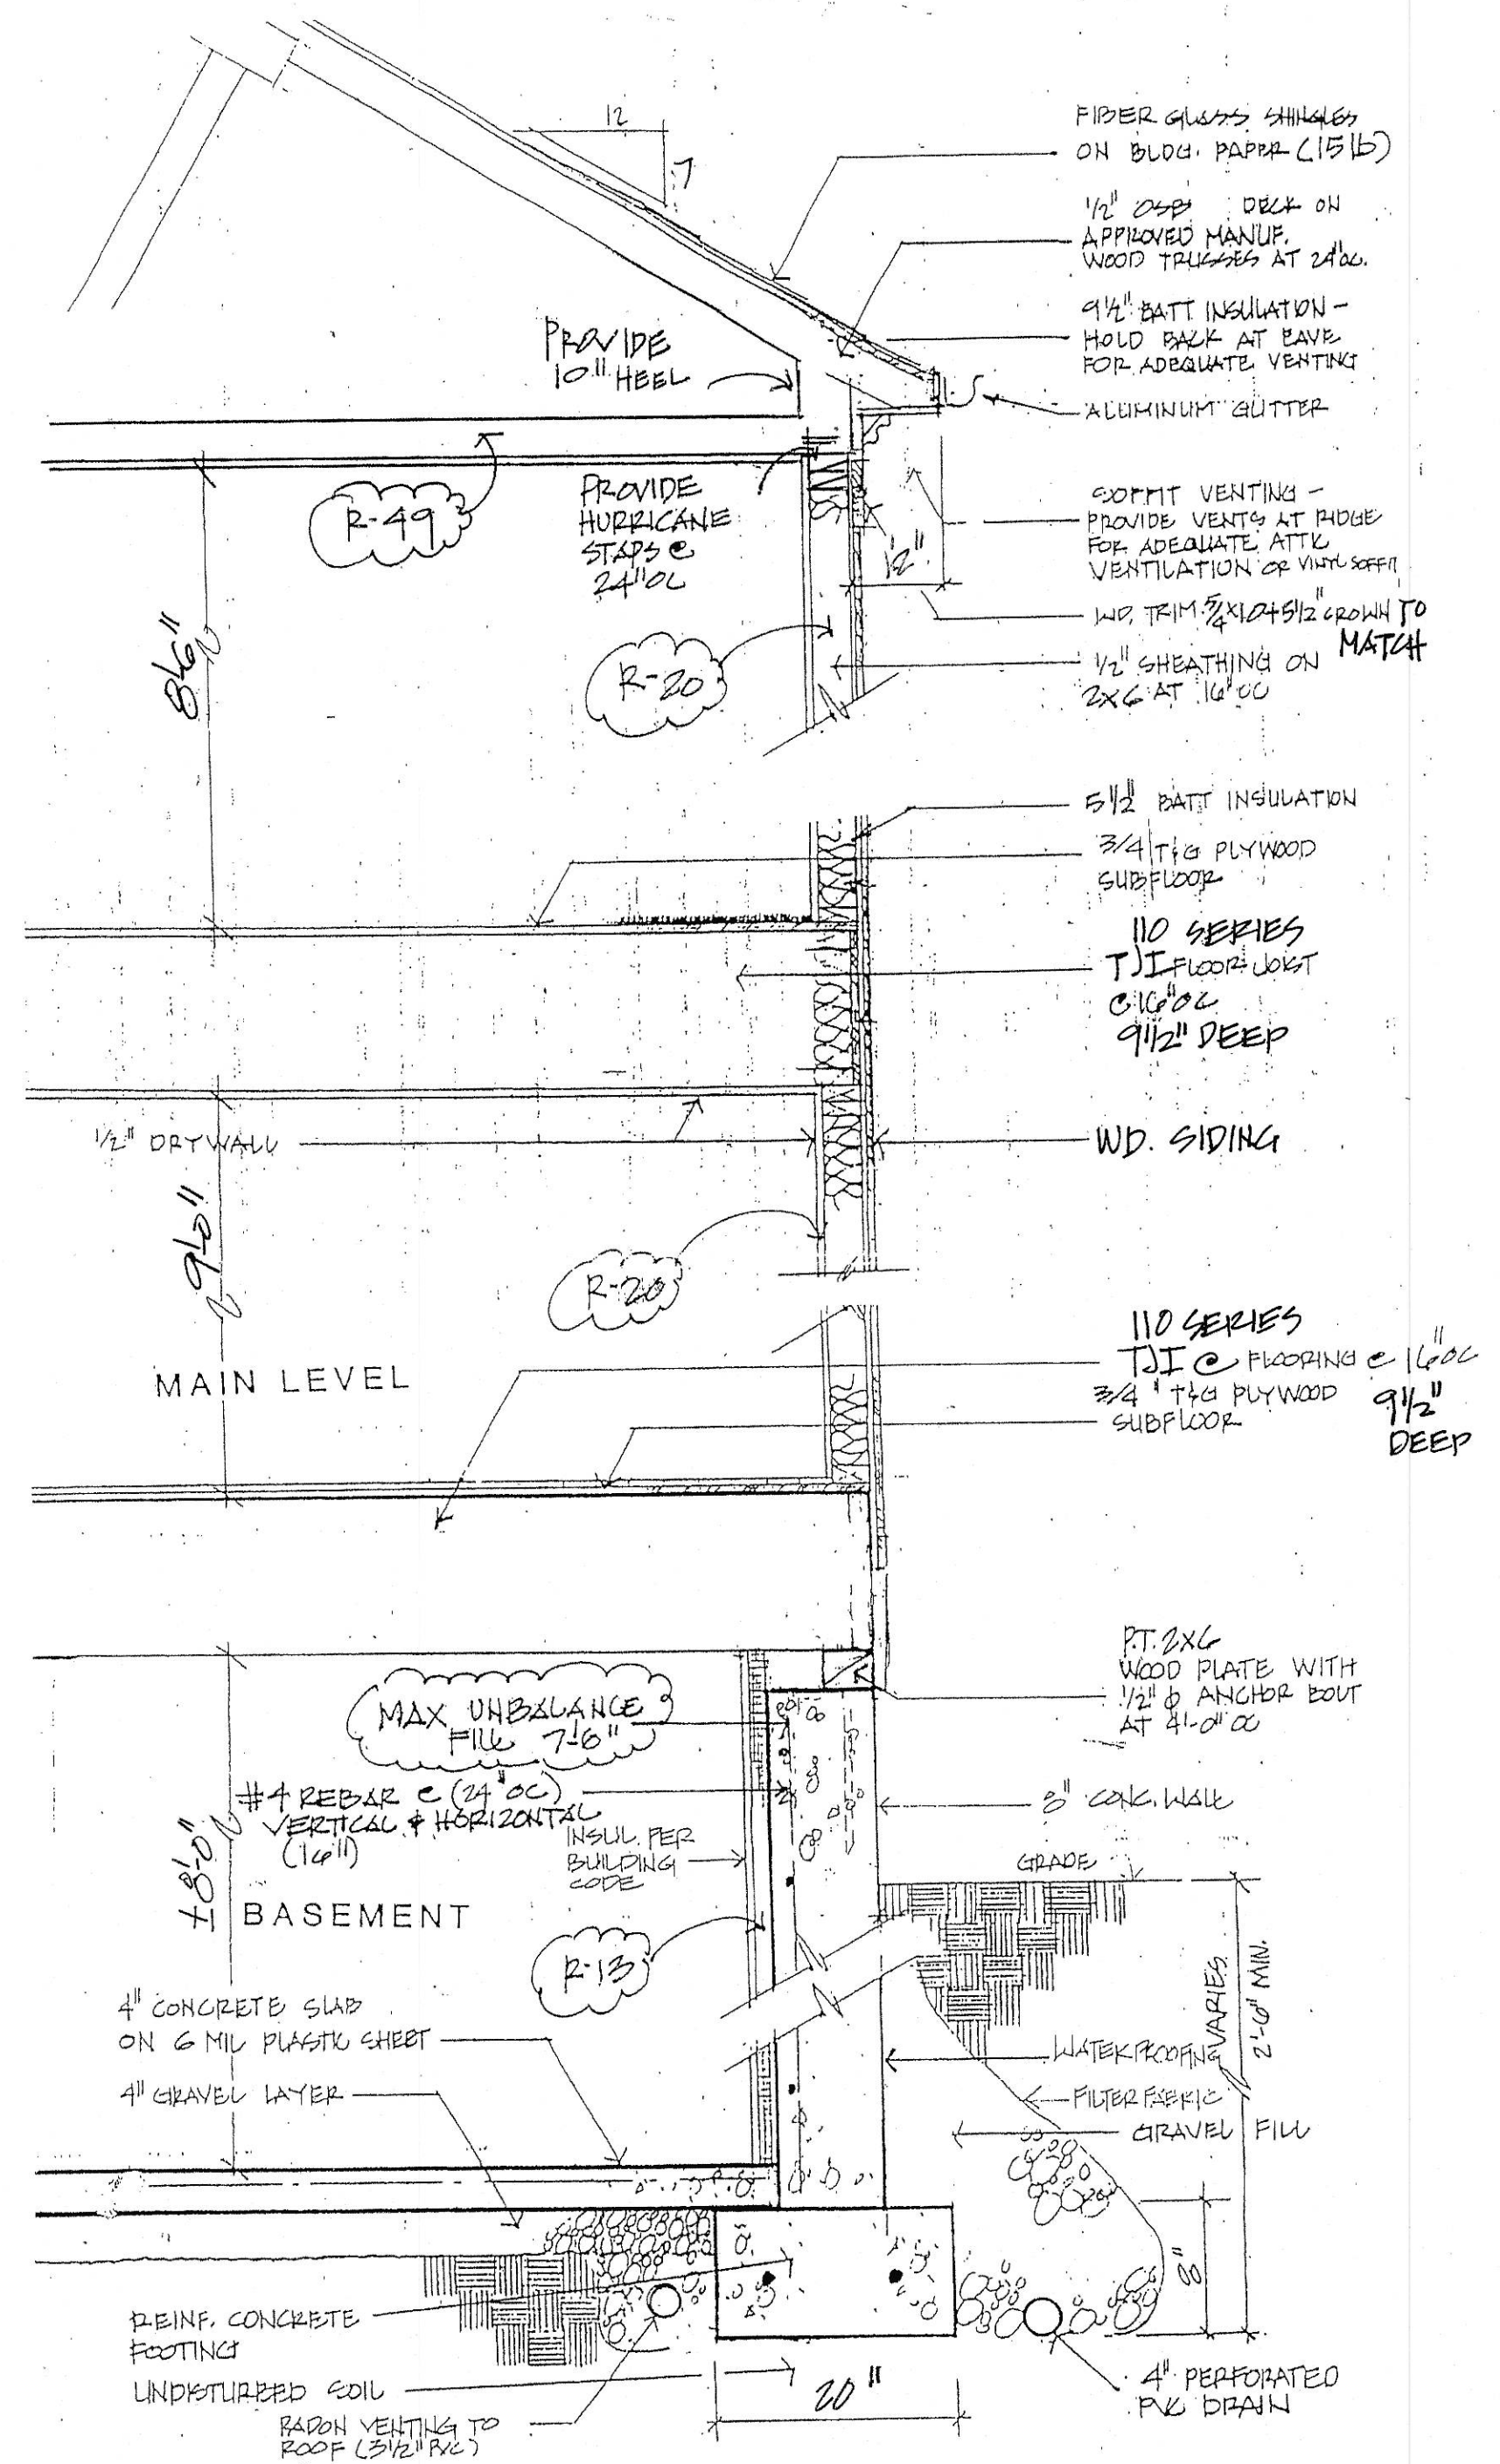 12
7
FIBER GLASS SHINGLES
ON BLDG. PAPER (15 lb)
1/2" OSB DECK ON
APPROVED MANUF.
WOOD TRUSSES AT 24"OC.
9 1/2" BATT INSULATION -
HOLD BACK AT EAVE
FOR ADEQUATE VENTING
PROVIDE
10" HEEL
ALUMINUM GUTTER
R-49
PROVIDE
HURRICANE
STAPS @
24"OC
12"
SOFFIT VENTING -
PROVIDE VENTS AT RIDGE
FOR ADEQUATE ATTIC
VENTILATION OR VINYL SOFFIT
WD. TRIM 5/4x10+5 1/2" CROWN TO
MATCH
8'-6"
R-20
1/2" SHEATHING ON
2x6 AT 16"OC
5 1/2" BATT INSULATION
3/4 T&G PLYWOOD
SUBFLOOR
110 SERIES
TJI FLOOR JOIST
@ 16"OC
9 1/2" DEEP
1/2" DRYWALL
WD. SIDING
9'-0"
R-20
MAIN LEVEL
110 SERIES
TJI @ FLOORING @ 16"OC
3/4" T&G PLYWOOD
SUBFLOOR
9 1/2"
DEEP
P.T. 2x6
WOOD PLATE WITH
1/2" φ ANCHOR BOLT
AT 4'-0" OC
MAX UNBALANCE
FILL 7'-6"
#4 REBAR @ (24"OC)
VERTICAL & HORIZONTAL
(16")
INSUL. PER
BUILDING
CODE
8" CONC. WALL
GRADE
±8'-0"
BASEMENT
R-13
VARIES
2'-6" MIN.
4" CONCRETE SLAB
ON 6 MIL PLASTIC SHEET
4" GRAVEL LAYER
WATERPROOFING
FILTER FABRIC
GRAVEL FILL
8"
REINF. CONCRETE
FOOTING
UNDISTURBED SOIL
RADON VENTING TO
ROOF (3 1/2" PVC)
20"
4" PERFORATED
PVC DRAIN